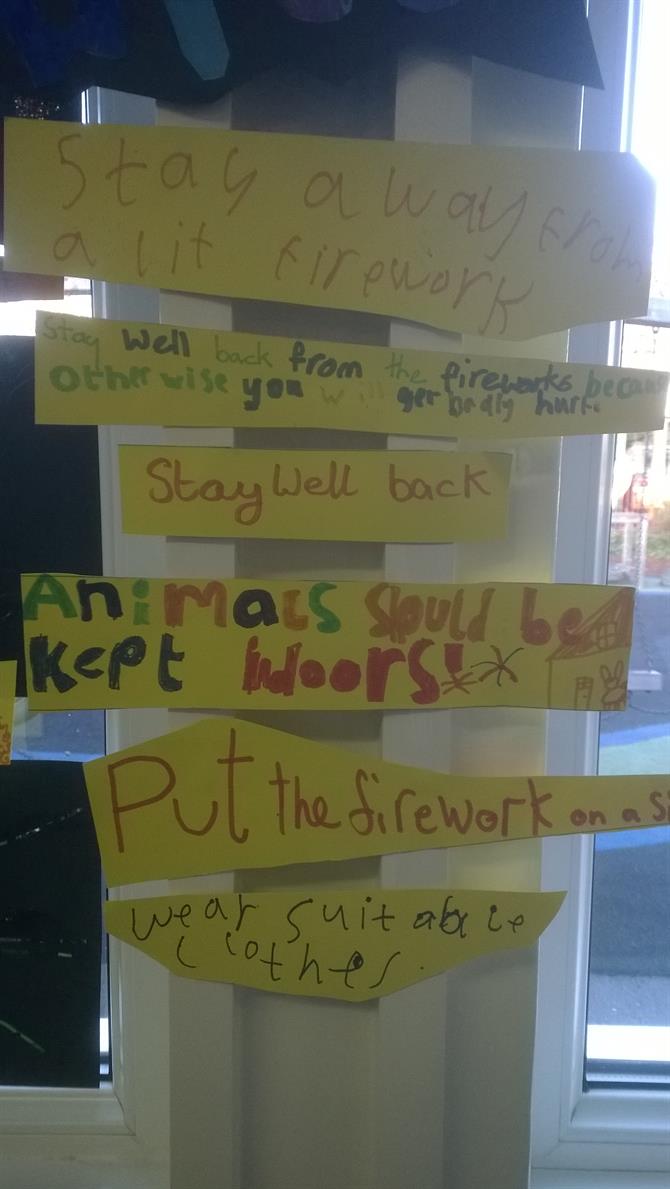 Stay away from
a lit firework
Stay well back from the fireworks becaus
otherwise you will get badly hurt.
Stay Well back
Animals Should be
Kept indoors!
Put the firework on a s
wear suitable
clothes.